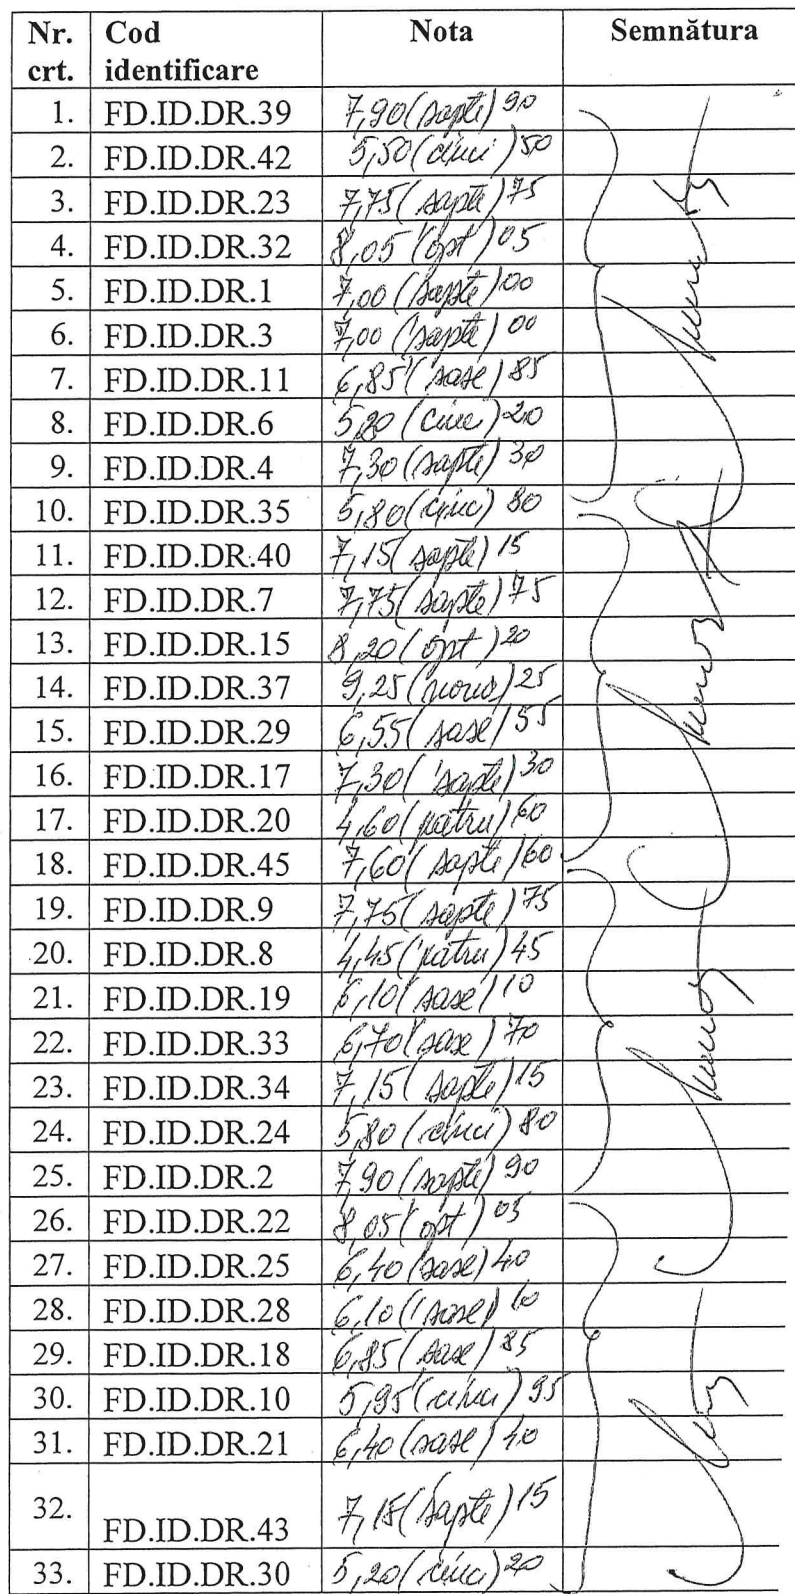 Nr. crt. Cod identificare Nota Semnătura
1. FD.ID.DR.39 7,90 (sapte) 90
2. FD.ID.DR.42 5,50 (cinci) 50
3. FD.ID.DR.23 7,75 (sapte) 75
4. FD.ID.DR.32 8,05 (opt) 05
5. FD.ID.DR.1 7,00 (sapte) 00
6. FD.ID.DR.3 7,00 (sapte) 00
7. FD.ID.DR.11 6,85 (sase) 85
8. FD.ID.DR.6 5,20 (cinci) 20
9. FD.ID.DR.4 7,30 (sapte) 30
10. FD.ID.DR.35 5,80 (cinci) 80
11. FD.ID.DR.40 7,15 (sapte) 15
12. FD.ID.DR.7 7,75 (sapte) 75
13. FD.ID.DR.15 8,20 (opt) 20
14. FD.ID.DR.37 9,25 (noua) 25
15. FD.ID.DR.29 6,55 (sase) 55
16. FD.ID.DR.17 7,30 (sapte) 30
17. FD.ID.DR.20 4,60 (patru) 60
18. FD.ID.DR.45 7,60 (sapte) 60
19. FD.ID.DR.9 7,75 (sapte) 75
20. FD.ID.DR.8 4,45 (patru) 45
21. FD.ID.DR.19 6,10 (sase) 10
22. FD.ID.DR.33 6,70 (sase) 70
23. FD.ID.DR.34 7,15 (sapte) 15
24. FD.ID.DR.24 5,80 (cinci) 80
25. FD.ID.DR.2 7,90 (sapte) 90
26. FD.ID.DR.22 8,05 (opt) 05
27. FD.ID.DR.25 6,40 (sase) 40
28. FD.ID.DR.28 6,10 (sase) 10
29. FD.ID.DR.18 6,85 (sase) 85
30. FD.ID.DR.10 5,95 (cinci) 95
31. FD.ID.DR.21 6,40 (sase) 40
32. FD.ID.DR.43 7,15 (sapte) 15
33. FD.ID.DR.30 5,20 (cinci) 20